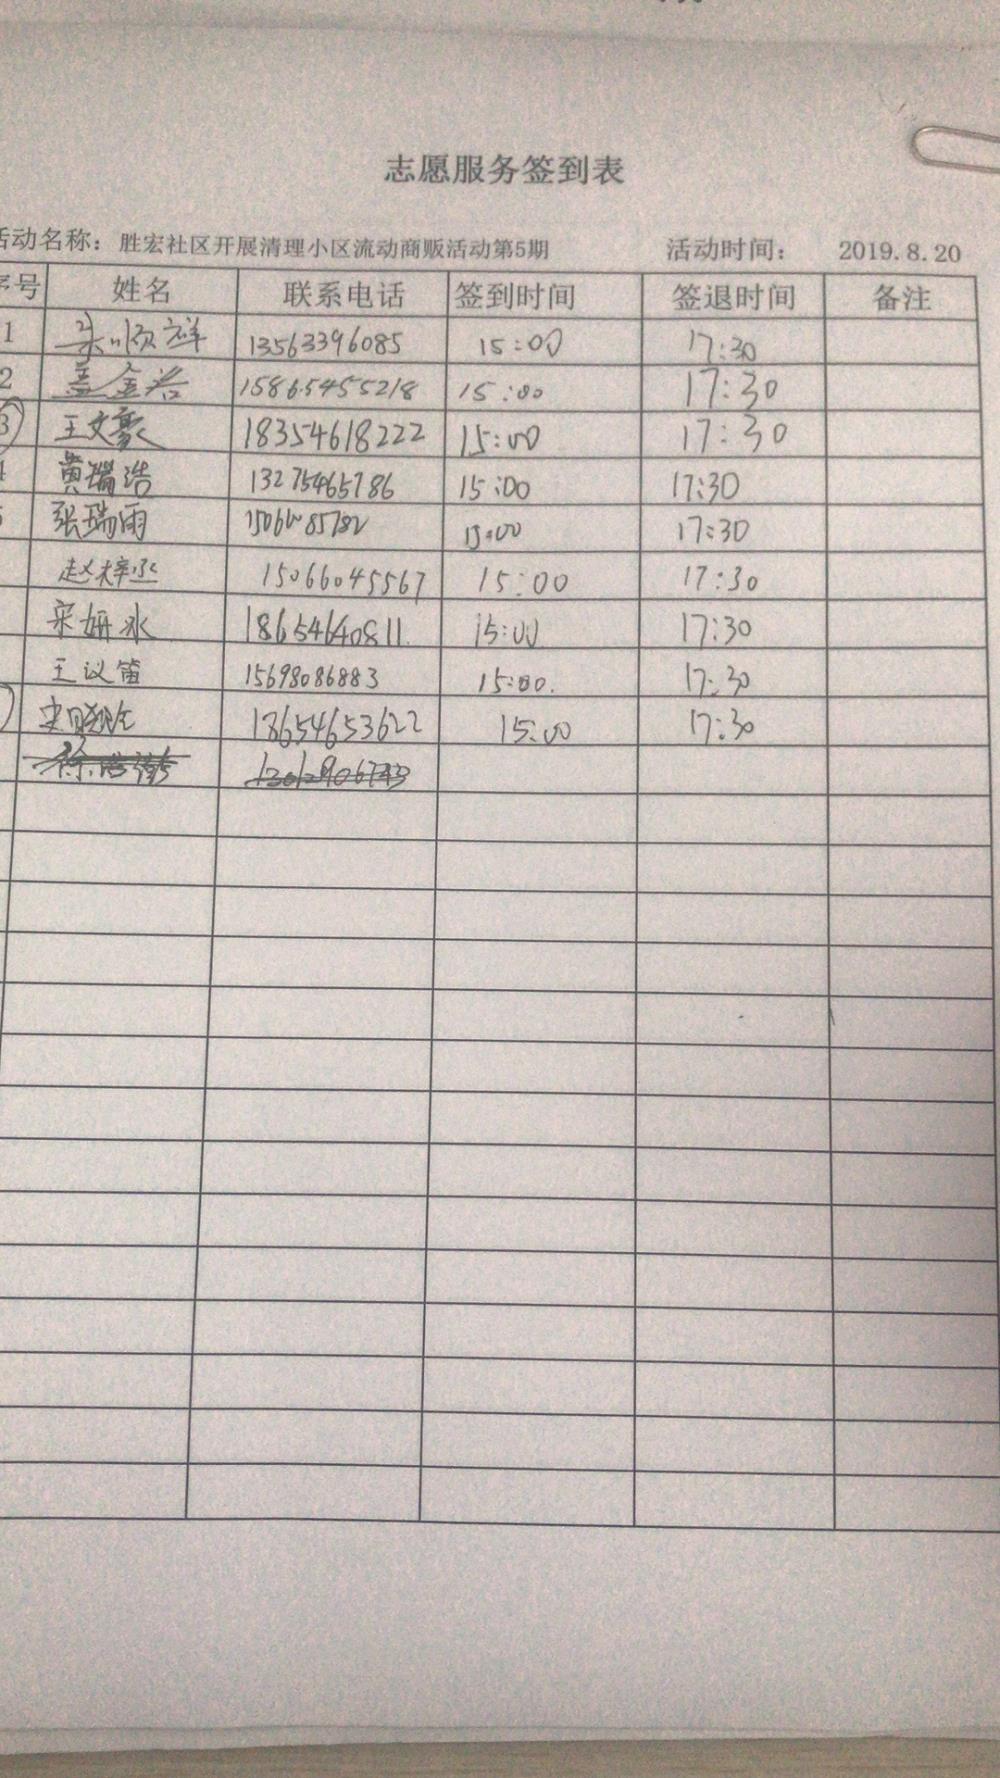 志愿服务签到表
活动名称：胜宏社区开展清理小区流动商贩活动第5期 活动时间： 2019.8.20
序号 姓名 联系电话 签到时间 签退时间 备注
1 朱顺祥 13563396085 15:00 17:30
2 盖金岩 15865455218 15:00 17:30
3 王文豪 18354618222 15:00 17:30
4 黄瑞浩 13275465786 15:00 17:30
5 张瑞雨 15:00 17:30
赵梓丞 15066045567 15:00 17:30
宋妍冰 18654640811 15:00 17:30
王议笛 15698086883 15:00 17:30
18654653622 15:00 17:30